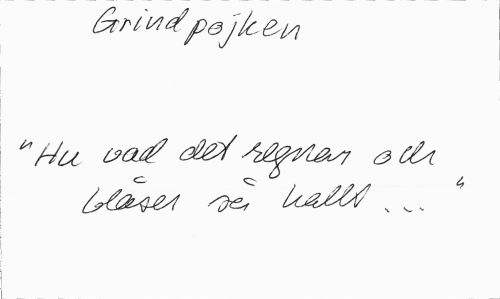 Grindpojken
"Hu vad det regnar och
blåser så kallt..."